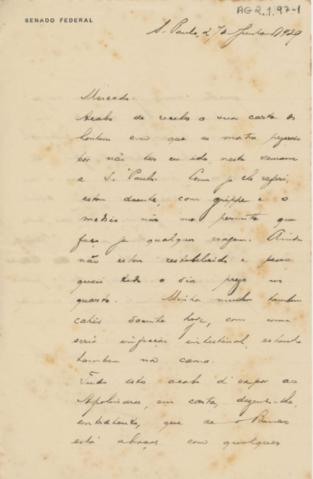 SENADO FEDERAL
AG 2.1.97-1
S. Paulo, 2 de Junho 1929
Acabo de receber a sua carta de
hontem em que se mostra pezaroso
por não ter eu ido nesta semana
a S. Paulo. Como já lhe referi,
estou doente, com grippe e o
medico não me permitte que
faça já qualquer viagem. Ainda
não estou restabelecido e
todo o dia preso no
quarto. Minha mulher tambem
doente hoje, com uma
seria infecção intestinal, estando
tambem na cama.
Tudo isto acabo de expor ao
Apolinario, em carta, dizendo-lhe,
entretanto, que se o
está a braços com qualquer